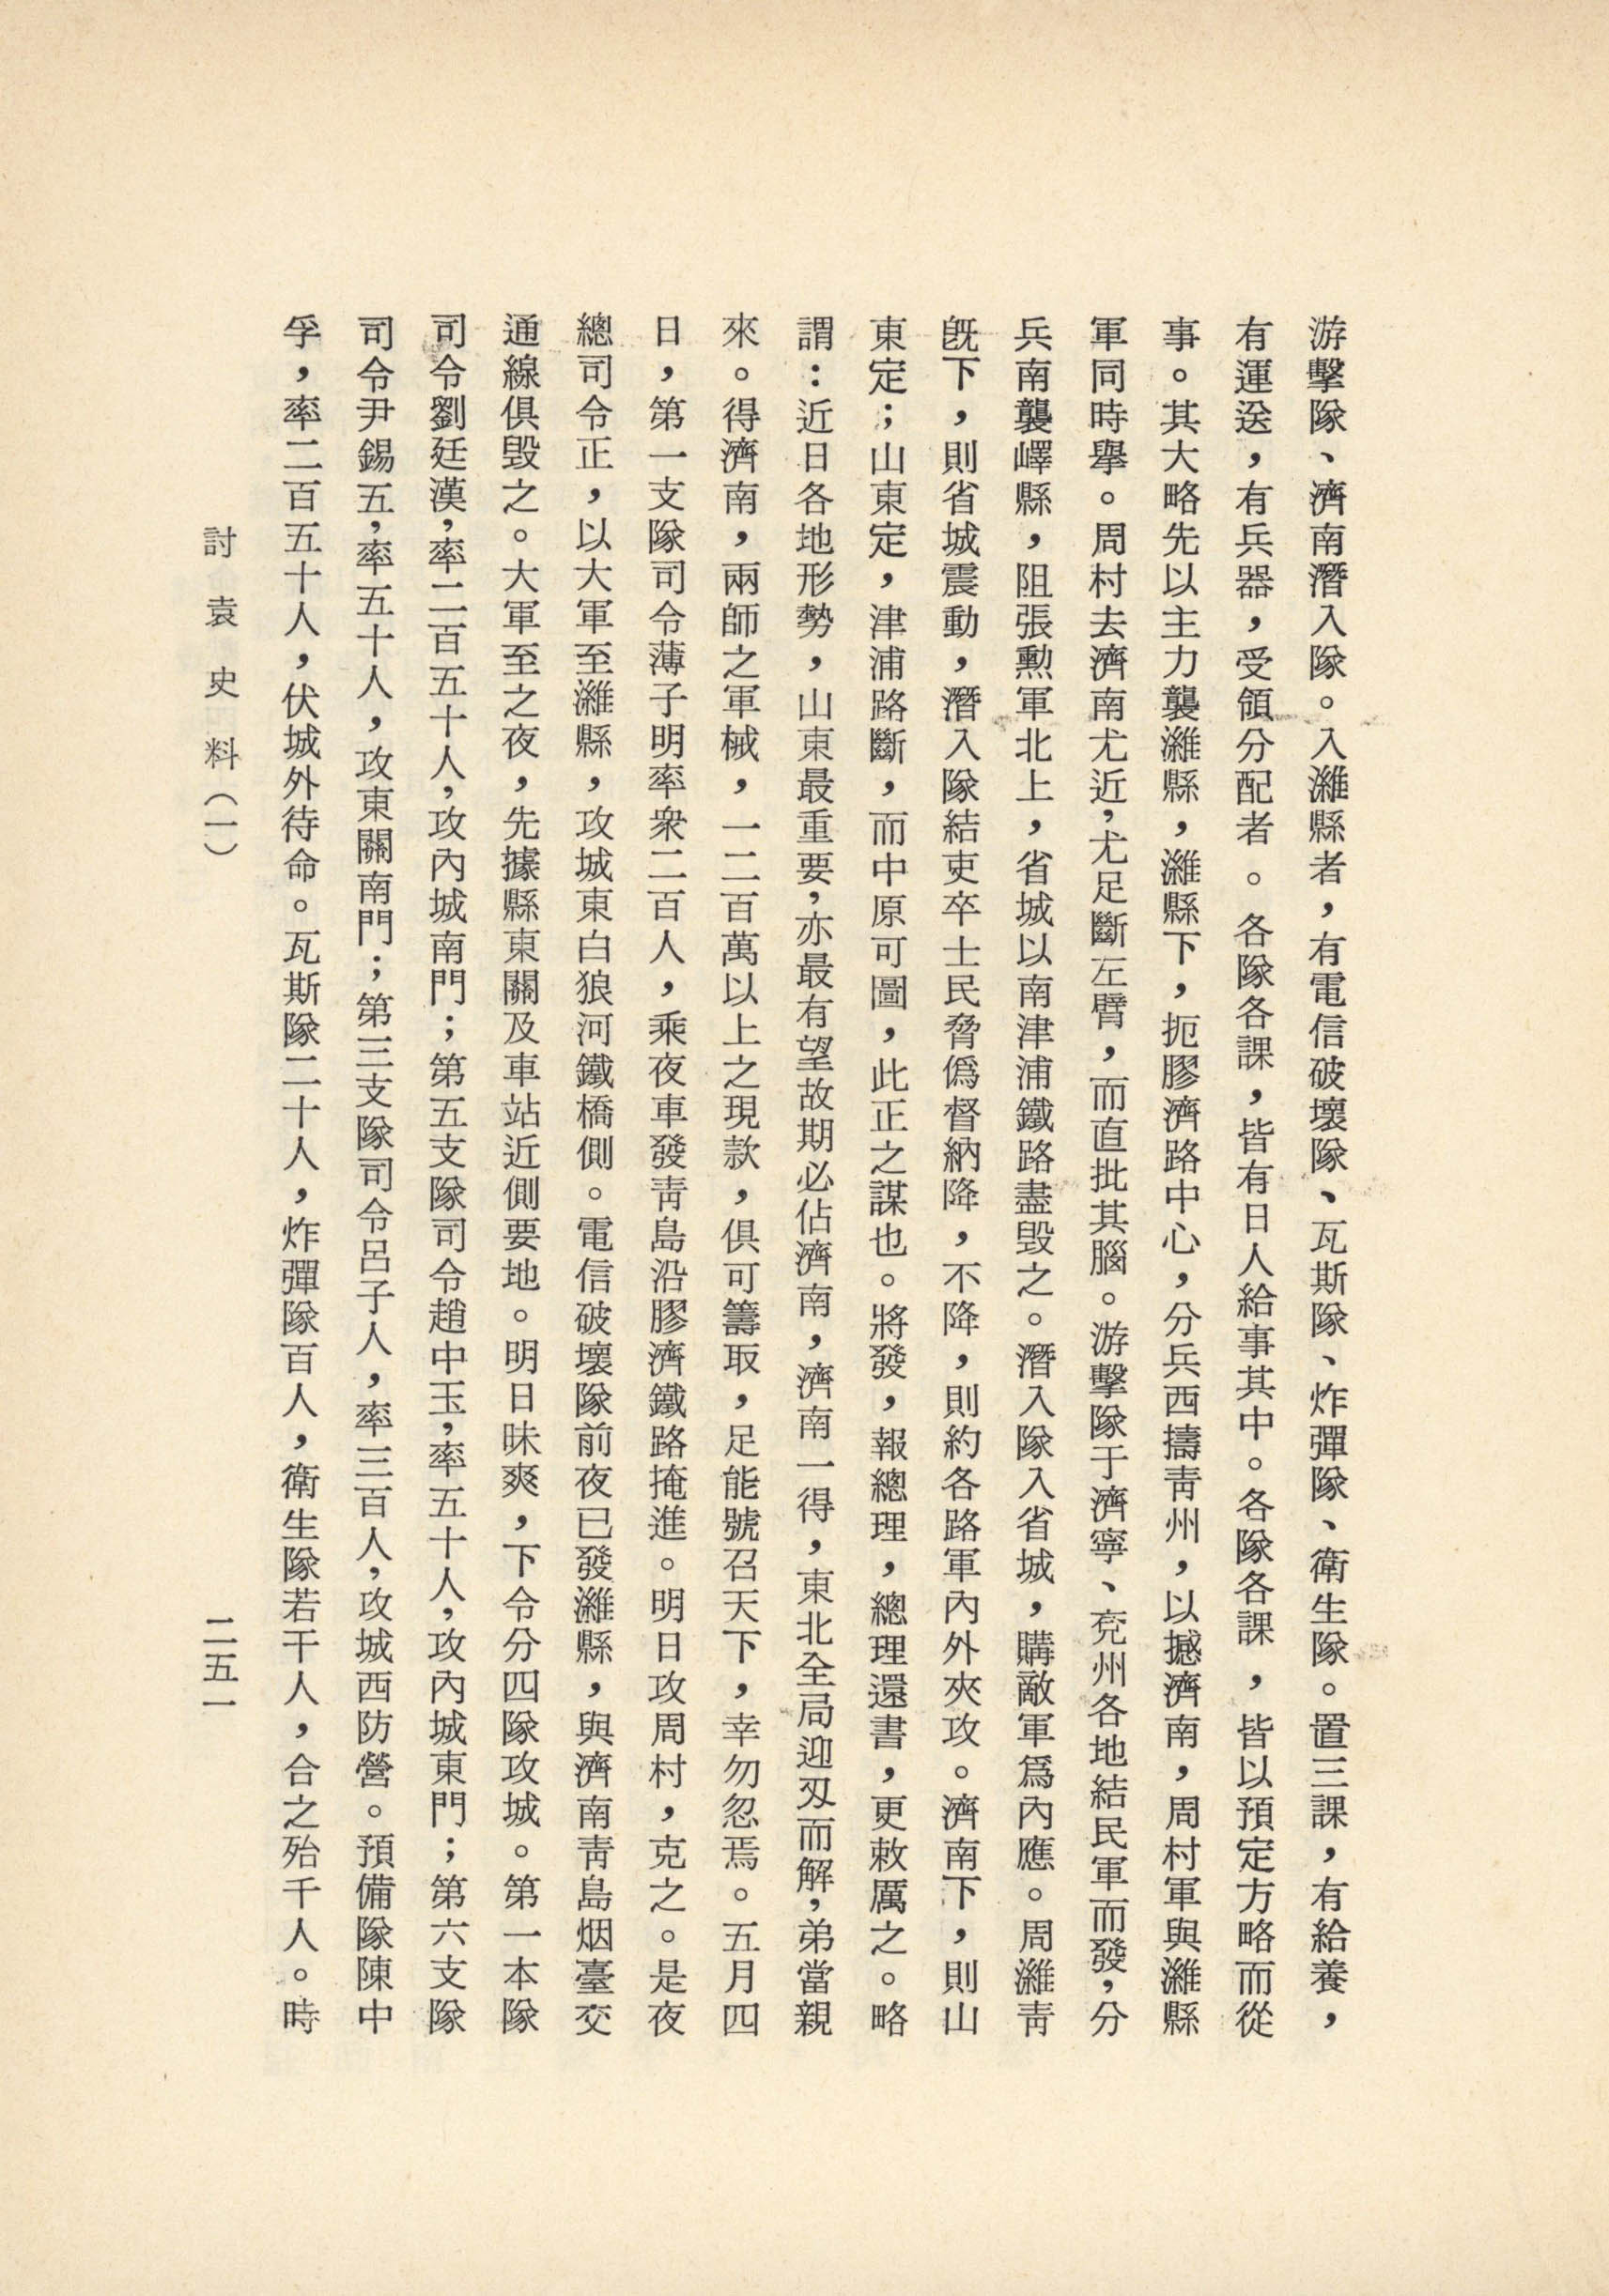 游擊隊、濟南潛入隊。入濰縣者，有電信破壞隊、瓦斯隊、炸彈隊、衛生隊。置三課，有給養，
有運送，有兵器，受領分配者。各隊各課，皆有日人給事其中。各隊各課，皆以預定方略而從
事。其大略先以主力襲濰縣，濰縣下，扼膠濟路中心，分兵西擣青州，以撼濟南，周村軍與濰縣
軍同時舉。周村去濟南尤近，尤足斷左臂，而直批其腦。游擊隊于濟寧、兗州各地結民軍而發，分
兵南襲嶧縣，阻張勳軍北上，省城以南津浦鐵路盡毀之。潛入隊入省城，購敵軍爲內應。周濰青
旣下，則省城震動，潛入隊結吏卒士民脅僞督納降，不降，則約各路軍內外夾攻。濟南下，則山
東定；山東定，津浦路斷，而中原可圖，此正之謀也。將發，報總理，總理還書，更敕厲之。略
謂：近日各地形勢，山東最重要，亦最有望故期必佔濟南，濟南一得，東北全局迎刃而解，弟當親
來。得濟南，兩師之軍械，一二百萬以上之現款，俱可籌取，足能號召天下，幸勿忽焉。五月四
日，第一支隊司令薄子明率衆二百人，乘夜車發青島沿膠濟鐵路掩進。明日攻周村，克之。是夜
總司令正，以大軍至濰縣，攻城東白狼河鐵橋側。電信破壞隊前夜已發濰縣，與濟南青島烟臺交
通線俱毀之。大軍至之夜，先據縣東關及車站近側要地。明日昧爽，下令分四隊攻城。第一本隊
司令劉廷漢，率二百五十人，攻內城南門；第五支隊司令趙中玉，率五十人，攻內城東門；第六支隊
司令尹錫五，率五十人，攻東關南門；第三支隊司令呂子人，率三百人，攻城西防營。預備隊陳中
孚，率二百五十人，伏城外待命。瓦斯隊二十人，炸彈隊百人，衛生隊若干人，合之殆千人。時
討袁史料（一）
二五一